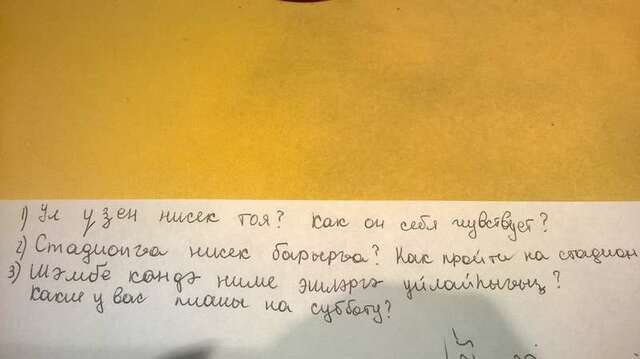 1) Ул үҙен нисек тоя? Как он себя чувствует?
2) Стадионға нисек барырға? Как пройти на стадион
3) Шәмбе көндә ниме эшләргә уйлайһығыҙ?
Какие у вас планы на субботу?